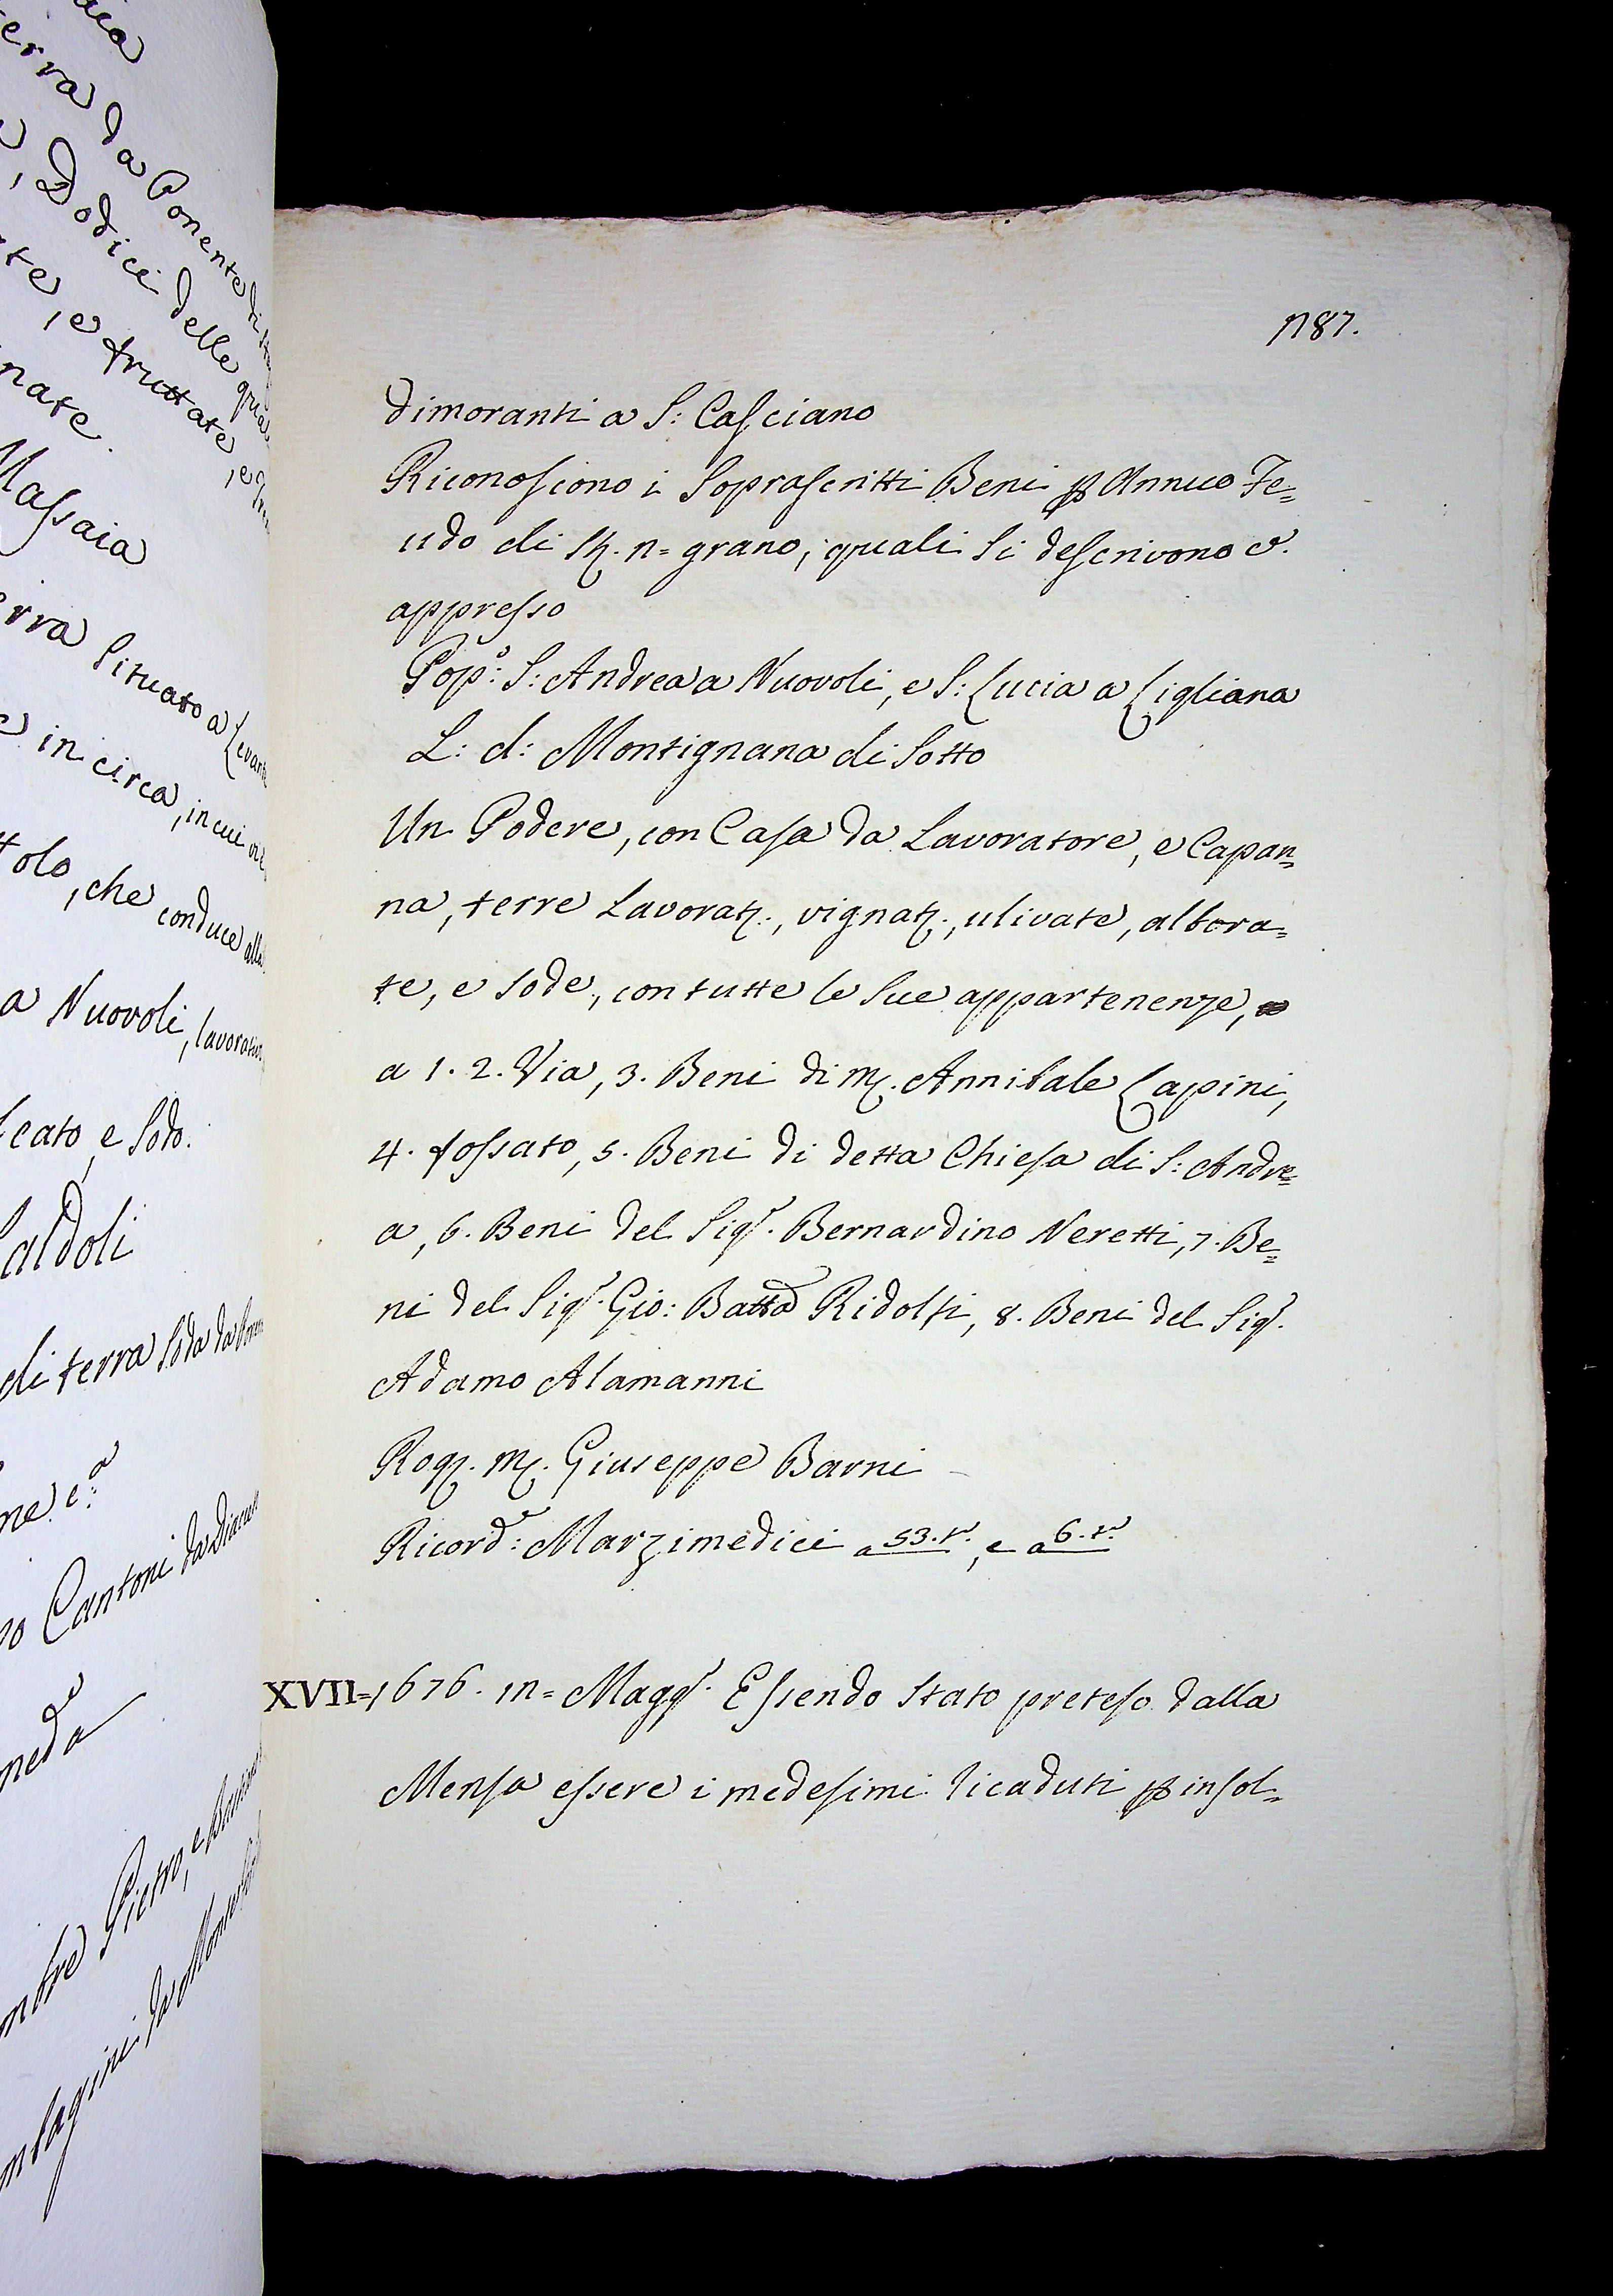 aia
erra da Ponente di
, Dodici delle qua
te, e fruttate, e
nate.
Massaia
erra Situato a Levante
e in circa, in cui
tolo, che conduce alla
a Nuovoli, lavorativ
cato, e Sodo.
aldoli
di terra Soda da
ne e:a
o Cantoni da
meda
mbre Pietro, e
1187.
dimoranti a S: Casciano
Riconoscono i Soprascritti Beni p Annuo Fe=
udo di St. n= grano, quali Si descrivono e.
appresso
Popo: S: Andrea a Nuovoli, e S: Lucia a Ligliana
L: d: Montignana di Sotto
Un Podere, con Casa da Lavoratore, e Capan=
na, terre Lavorat., vignat., ulivate, albora=
te, e Sode, con tutte le Sue appartenenze,
a 1. 2. Via, 3. Beni di M. Annibale Lapini,
4. fossato, 5. Beni di detta Chiesa di S: Andre=
a, 6. Beni del Sigr. Bernardino Neretti, 7. Be=
ni del Sigr. Gio: Batta Ridolfi, 8. Beni del Sigr.
Adamo Alamanni
Rog. M. Giuseppe Barni
Ricorde: Marzimedici a 53. t., e a 6. t.
XVII=1676. 111= Maggo. Essendo Stato preteso dalla
Mensa essere i medesimi ricaduti p insol=